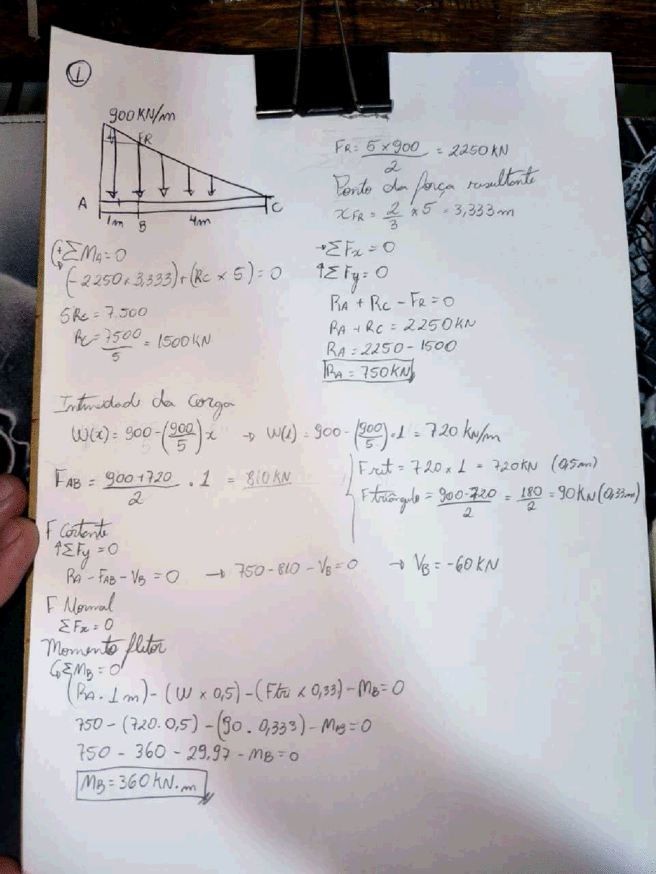 1
900 KN/m
FR
A
1m
B
4m
C
FR = 5 x 900 / 2 = 2250 KN
Ponto da força resultante
xFR = 2/3 x 5 = 3,333 m
ΣMA = 0
(-2250 x 3,333) + (RC x 5) = 0
5RC = 7.500
RC = 7500/5 = 1500 KN
→ΣFx = 0
↑ΣFy = 0
RA + RC - FR = 0
RA + RC = 2250 KN
RA = 2250 - 1500
RA = 750 KN
Intensidade da Carga
W(x) = 900 - (900/5) x → W(1) = 900 - (900/5) . 1 = 720 KN/m
FAB = 900+720 / 2 . 1 = 810 KN
Fret = 720 x 1 = 720 KN (0,5m)
Ftriângulo = 900-720 / 2 = 180/2 = 90 KN (0,33m)
F Cortante
↑ΣFy = 0
RA - FAB - VB = 0 → 750 - 810 - VB = 0 → VB = -60 KN
F Normal
ΣFx = 0
Momento fletor
ΣMB = 0
(RA . 1m) - (W x 0,5) - (Ftri x 0,33) - MB = 0
750 - (720 . 0,5) - (90 . 0,333) - MB = 0
750 - 360 - 29,97 - MB = 0
MB = 360 KN.m